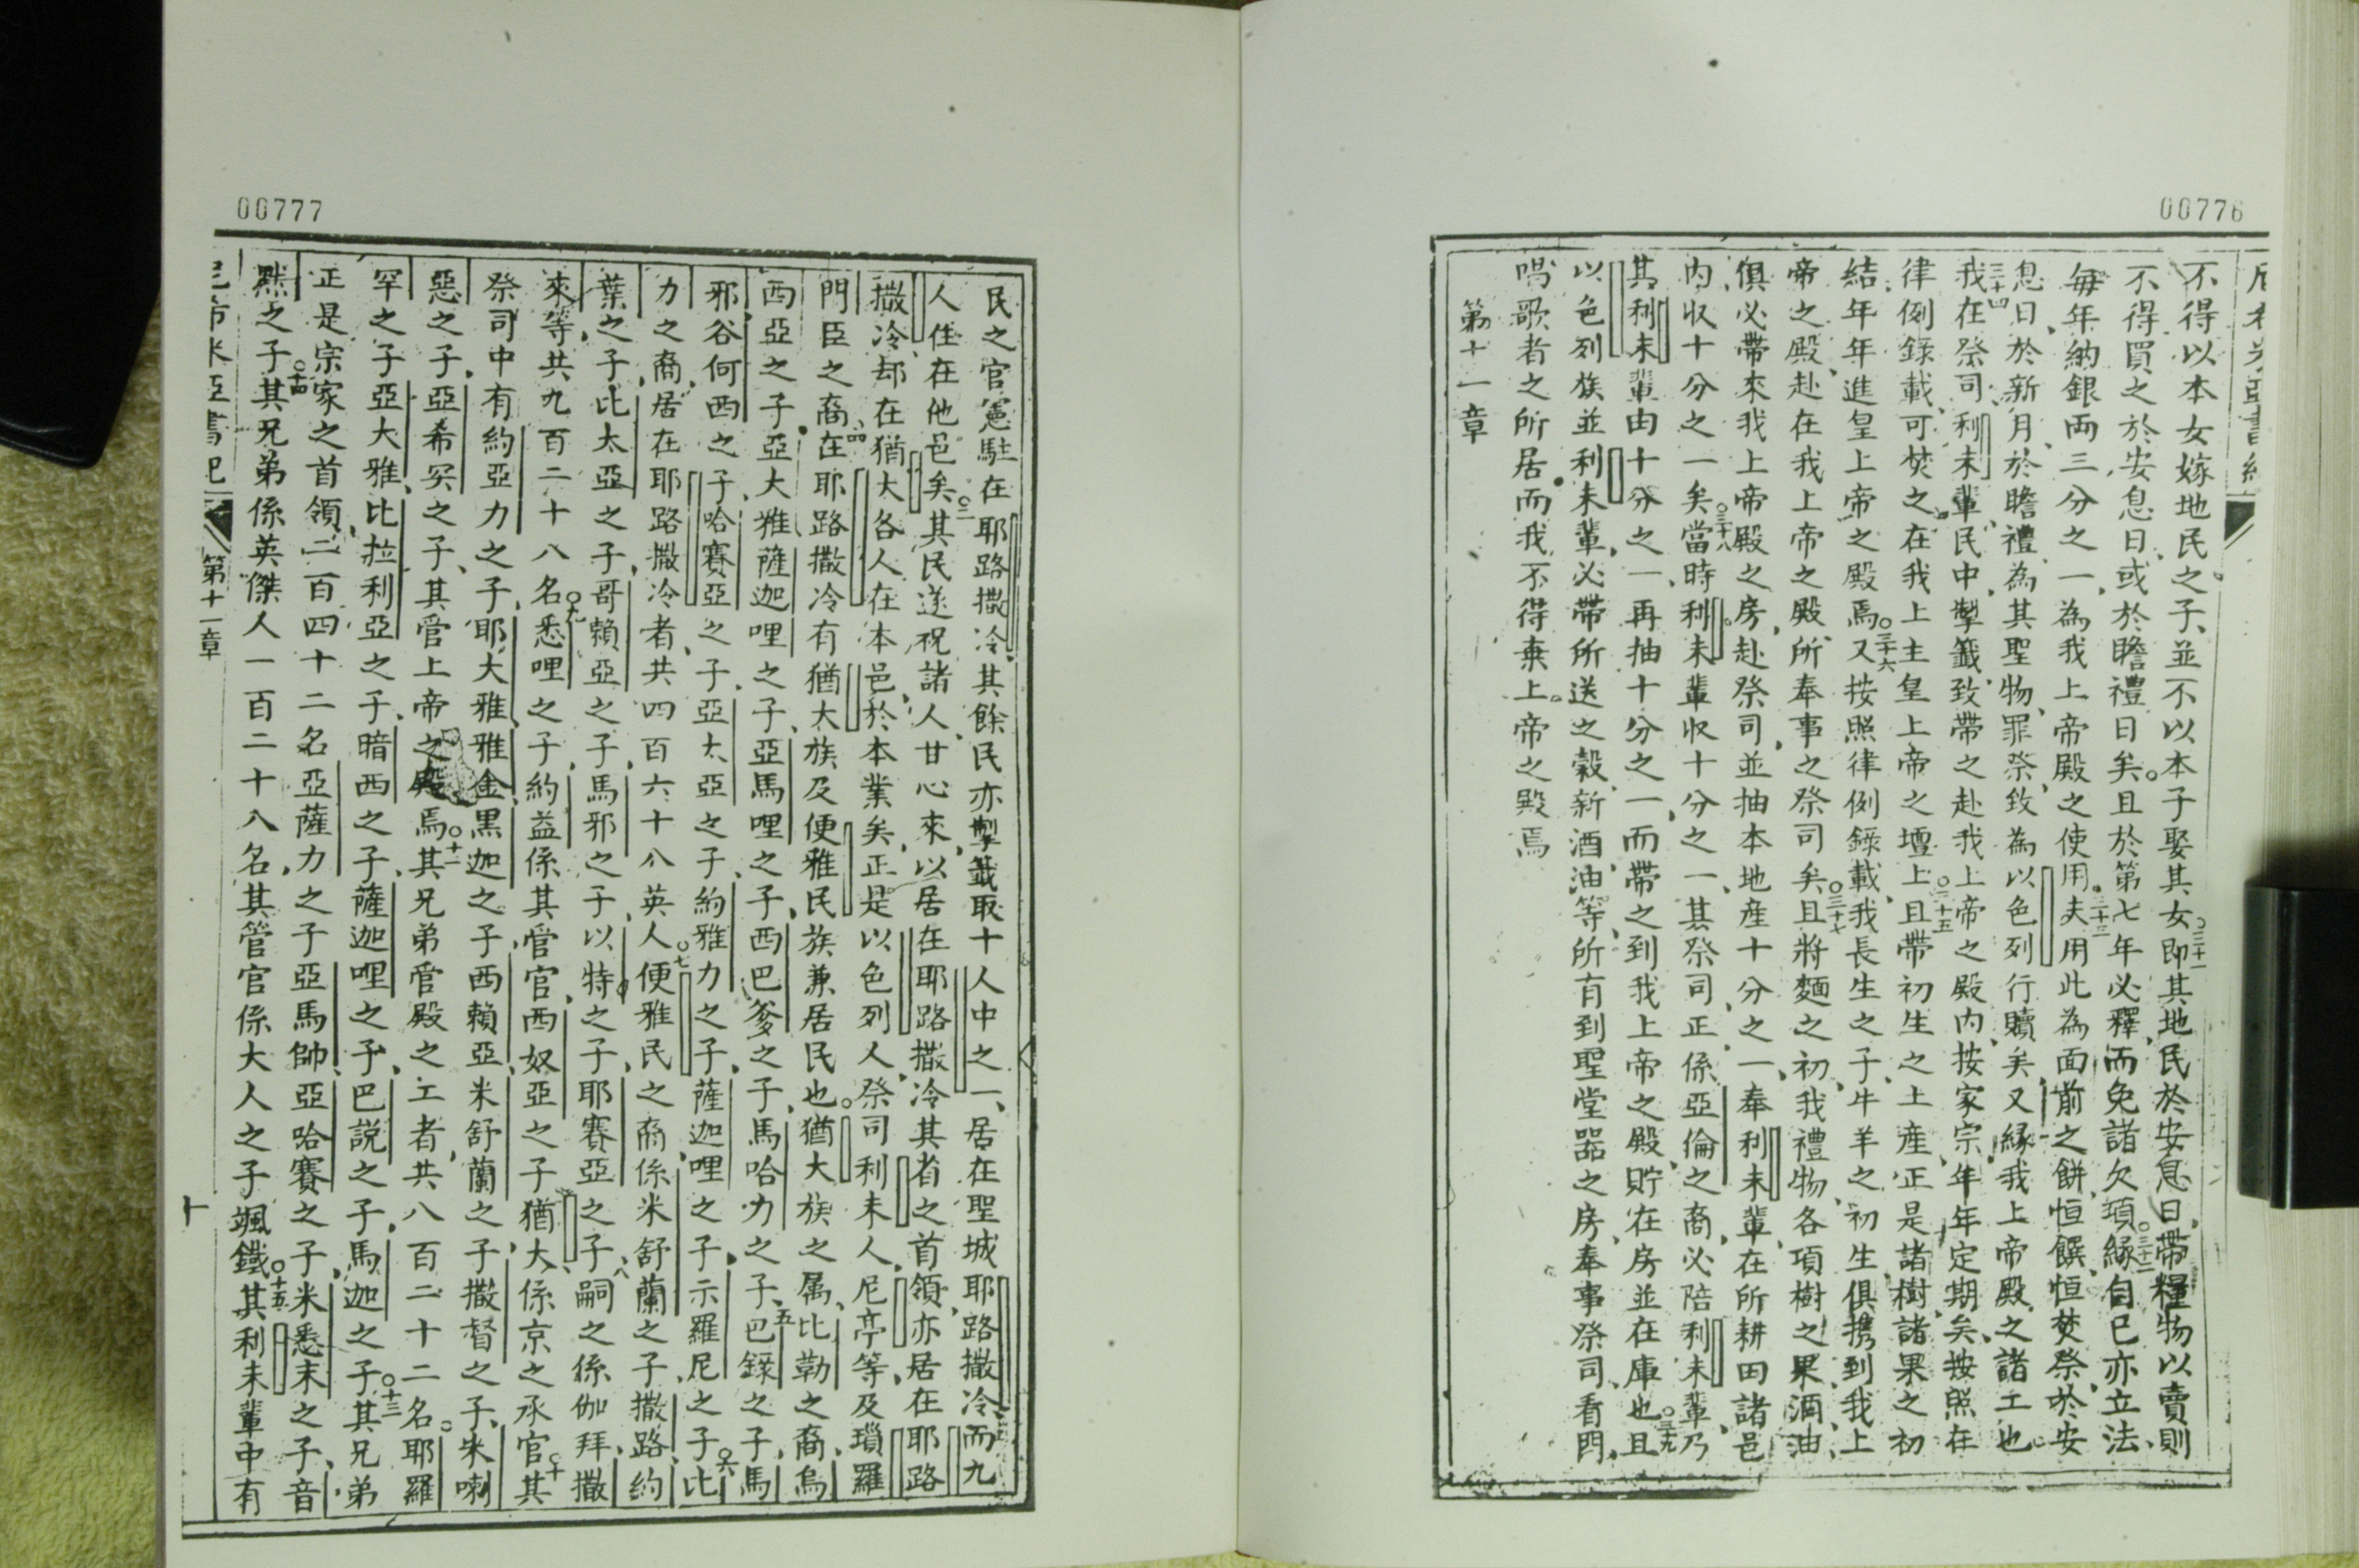 00776
不得以本女嫁地民之子、並不以本子娶其女○三十一即其地民於安息日、帶糧物以賣則
不得買之於安息日、或於瞻禮日矣。且於第七年必釋、而免諸欠項。○三十二緣自己亦立法、
每年納銀兩三分之一、為我上帝殿之使用。○三十三夫用此為面前之餅、恒饌、恒焚祭、於安
息日、於新月、於瞻禮、為其聖物、罪祭、致為以色列行贖矣、又緣我上帝殿之諸工也。
○三十四我在祭司、利未輩、民中、掣籤、致帶之赴我上帝之殿內、按家宗、年年定期矣、按照在
律例錄載、可焚之在我上主皇上帝之壇上○三十五且帶初生之土產、正是諸樹、諸果之初
結、年年進皇上帝之殿焉。○三十六又按照律例錄載、我長生之子、牛羊之初生、俱携到我上
帝之殿、赴在我上帝之殿、所奉事之祭司矣。○三十七且將麵之初、我禮物、各項樹之果、酒、油、
俱必帶來我上帝殿之房、赴祭司、並抽本地產十分之一、奉利未輩、在所耕田諸邑
內、收十分之一矣。○三十八當時利未輩收十分之一、其祭司、正係亞倫之裔、必陪利未輩、乃
其利未輩由十分之一、再抽十分之一、而帶之到我上帝之殿、貯在房並在庫也。○三十九且
以色列族並利未輩、必帶所送之穀、新酒、油等、所有到聖堂器之房、奉事祭司、看門、
唱歌者之所居。而我不得棄上帝之殿焉
第十一章
00777
民之官憲駐在耶路撒冷、其餘民亦掣籤取十人中之一、居在聖城耶路撒冷、而九
人住在他邑矣。○二其民遂祝諸人、甘心來、以居在耶路撒冷○三其省之首領、亦居在耶路
撒冷、却在猶大各人在本邑、於本業矣、正是以色列人、祭司、利未人、尼亭等、及瑣羅
門臣之裔。○四在耶路撒冷有猶大族及便雅民族兼居民也。猶大族之屬、比勒之裔、烏
西亞之子、亞大雅、薩迦哩之子、亞馬哩之子、西巴爹之子、馬哈力之子、○五巴錄之子、馬
邪谷何西之子、哈賽亞之子、亞大亞之子、約雅力之子、薩迦哩之子、示羅尼之子、○六比
力之裔、居在耶路撒冷者、共四百六十八英人○七便雅民之裔、係米舒蘭之子、撒路、約
葉之子、比太亞之子、哥賴亞之子、馬邪之子、以特之子、耶賽亞之子、○八嗣之係伽拜、撒
來等、共九百二十八名○九悉哩之子約益、係其管官、西奴亞之子猶大、係京之承官○十其
祭司中有約亞力之子、耶大雅、雅金○十一黑迦之子西賴亞、米舒蘭之子、撒督之子、米喇
惡之子、亞希突之子、其管上帝之殿焉○十二其兄弟管殿之工者、共八百二十二名。耶羅
罕之子亞大雅、比拉利亞之子、暗西之子、薩迦哩之子、巴說之子、馬迦之子○十三其兄弟
正是宗家之首領、二百四十二名、亞薩力之子亞馬帥、亞哈賽之子、米悉末之子、音
○十四黙之子其兄弟係英傑人、一百二十八名、其管官係大人之子颯鐵○十五其利未輩中有
尼希米亞書記 第十一章 十